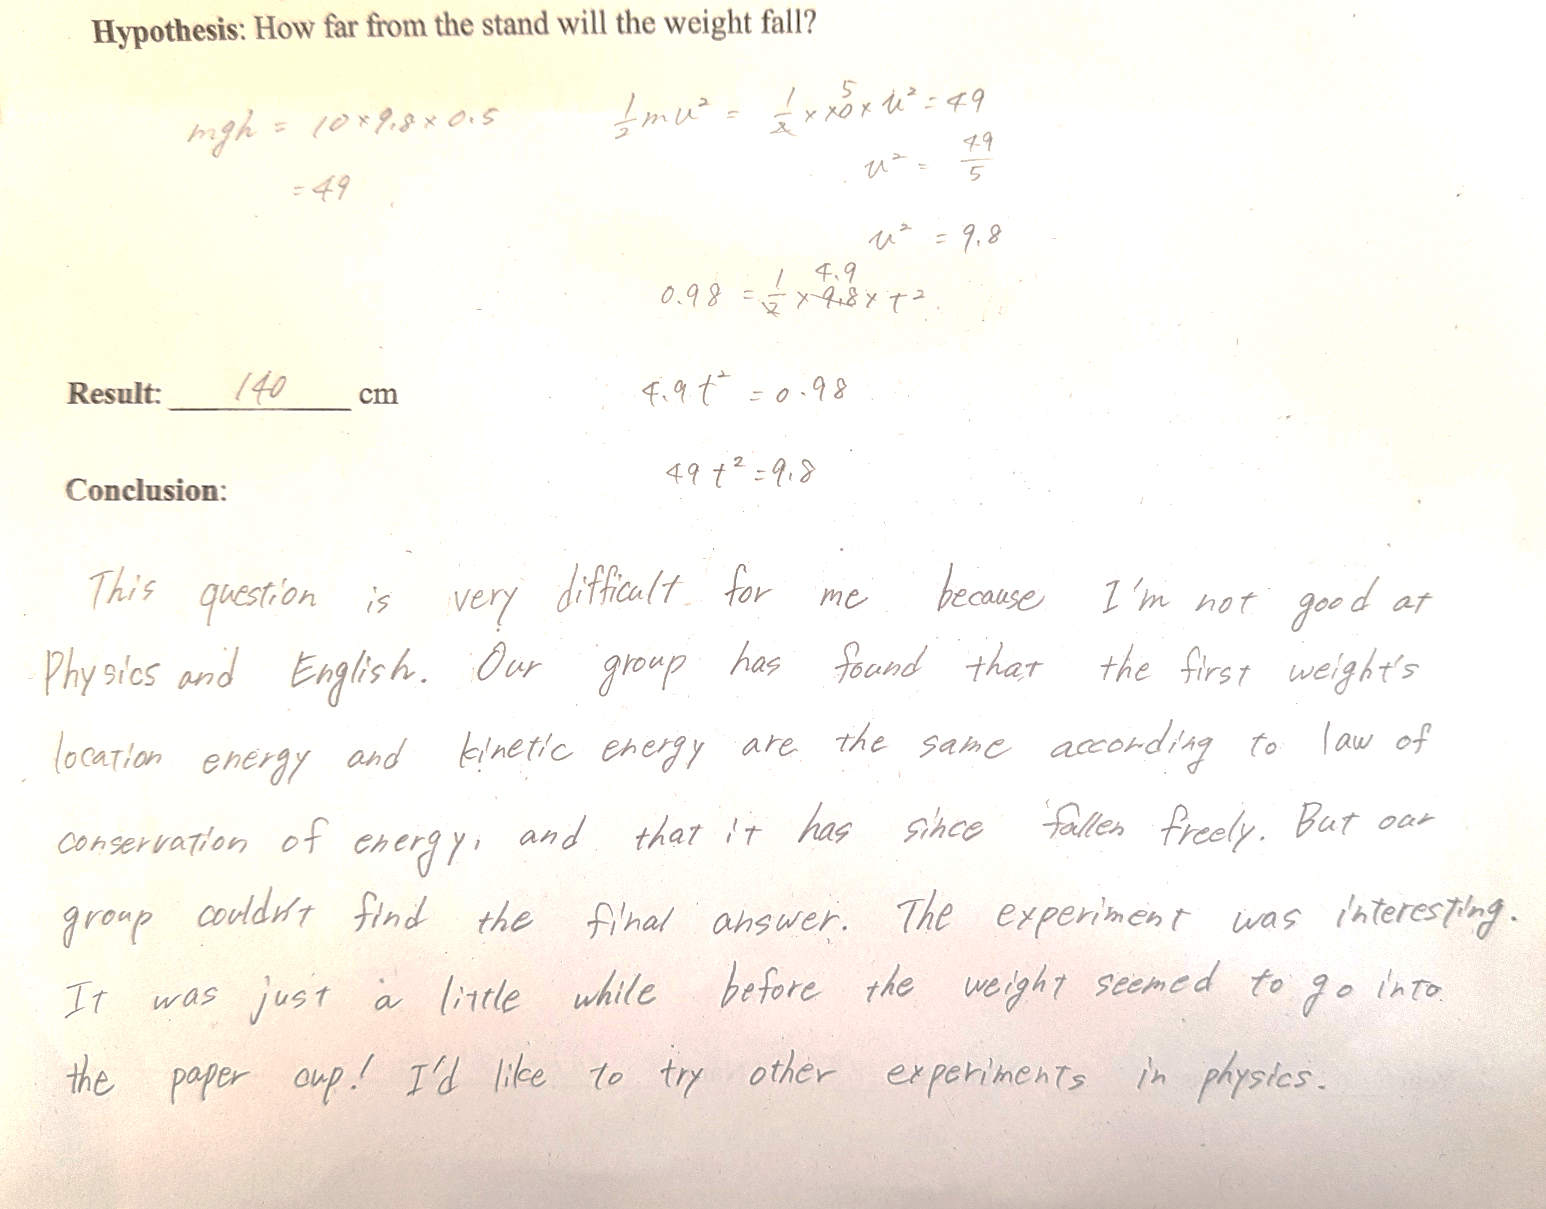 Hypothesis: How far from the stand will the weight fall?
mgh = 10×9.8×0.5
= 49
1/2 mu² = 1/2 × 10 × u² = 49
5
u² = 49/5
u² = 9.8
4.9
0.98 = 1/2 × 9.8 × t²
Result: 140 cm
4.9t² = 0.98
49t² = 9.8
Conclusion:
This question is very difficult for me because I'm not good at
Physics and English. Our group has found that the first weight's
location energy and kinetic energy are the same according to law of
conservation of energy, and that it has since fallen freely. But our
group couldn't find the final answer. The experiment was interesting.
It was just a little while before the weight seemed to go into
the paper cup! I'd like to try other experiments in physics.